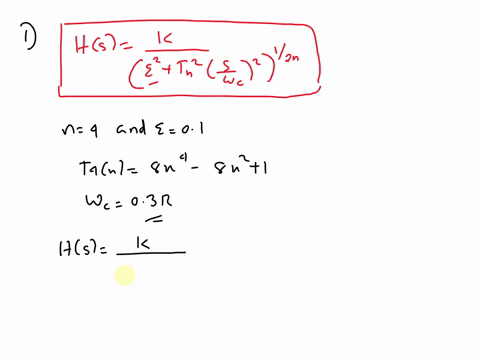 1)
H(s) = K / (ε² + Tn² (s/ωc)²)^1/2n
n=4 and ε=0.1
T4(x) = 8x⁴ - 8x² + 1
ωc = 0.3π
H(s) = K